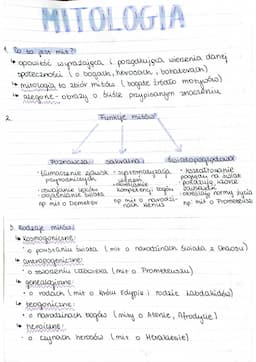 MITOLOGIA
1. Co to jest mit?
↳ opowieść wyrażająca i porządkująca wierzenia danej
społeczności (o bogach, herosach, bohaterach)
↳ mitologia to zbiór mitów (bogate źródło motywów)
↳ alegorie - obrazy o ściśle przypisanym znaczeniu
2. Funkcje mitów:
Poznawcza: sakralna: światopoglądowa:
• tłumaczenie zjawisk
przyrodniczych
• objaśnianie świata
np. mit o Demeter
kompetencji bogów
np. mit o narodzinach Wenus
• kształtowanie
poglądu na świat
normy życia
np. mit o Prometeuszu
3. Rodzaje mitów:
↳ kosmogoniczne:
• o powstaniu świata (mit o narodzinach świata z Chaosu)
↳ antropogeniczne:
• o stworzeniu człowieka (mit o Prometeuszu)
↳ genealogiczne:
• o rodach (mit o królu Edypie i rodzie Labdakidów)
↳ teogoniczne:
• o narodzinach bogów (mity o Atenie, Afrodycie)
↳ heroiczne:
• o czynach herosów (mit o Heraklesie)